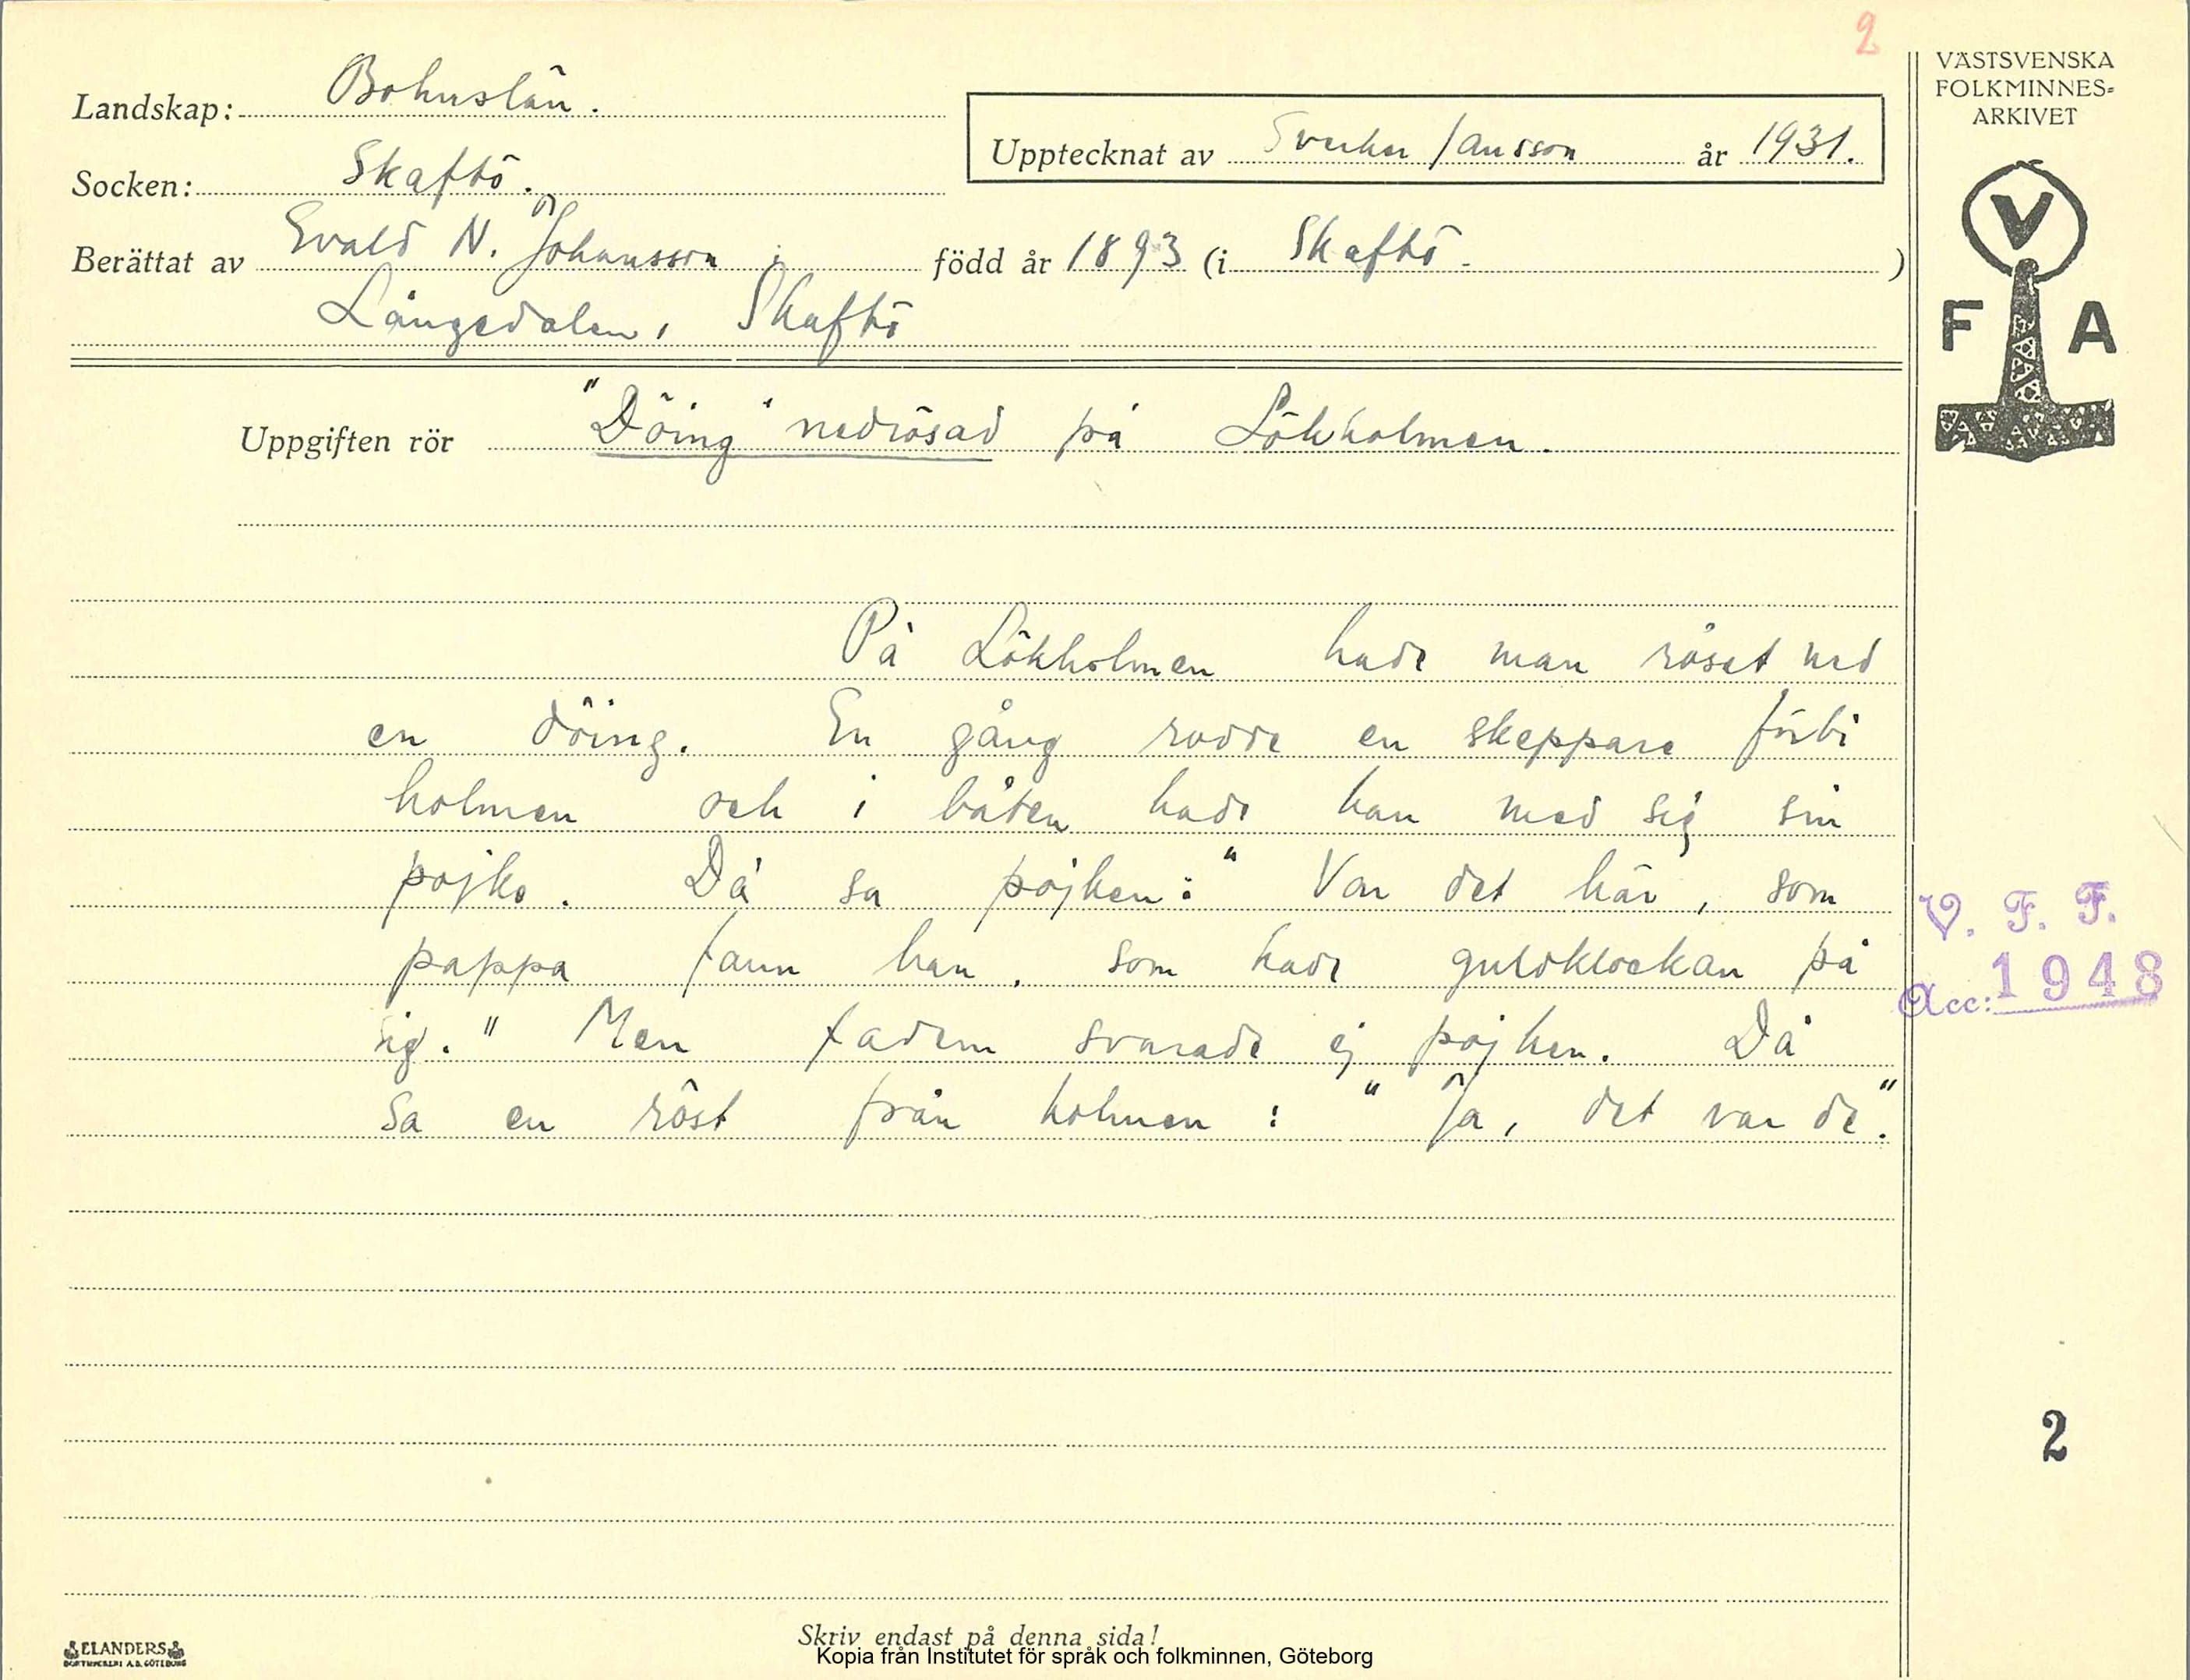 2
VÄSTSVENSKA
FOLKMINNES=
ARKIVET
V
F A
Landskap: Bohuslän.
Upptecknat av Sverker Jansson år 1931.
Socken: Skaftö.
Berättat av Evald N. Johansson i född år 1893 (i Skaftö. )
Långedalen, Skaftö
Uppgiften rör "Döing" nedrösad på Lökholmen.
På Lökholmen hade man röset ned
en döing. En gång rodde en skeppare förbi
holmen och i båten hade han med sig sin
pojke. Då sa pojken: "Var det här, som
pappa fann han, som hade guldklockan på
sig." Men fadern svarade ej pojken. Då
sa en röst från holmen: "Ja, det var de".
V. F. F.
Acc: 1948
2
Skriv endast på denna sida!
Kopia från Institutet för språk och folkminnen, Göteborg
ELANDERS
BOKTRYCKERI A.B. GÖTEBORG